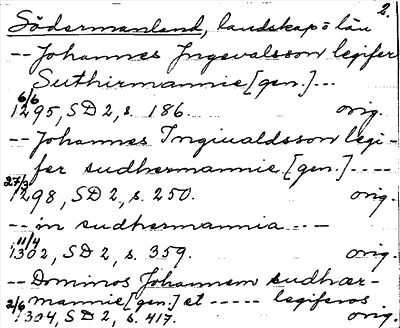 2.
Södermanland, landskap o län
-- Johannes Ingevalsson legifer
Suthirmannie [gen.] ---
6/6 1295, SD 2, s. 186. orig.
-- Johannes Ingiualdsson legi-
fer sudhermannie [gen.] ----
27/3 1298, SD 2, s. 250. orig.
-- in sudhermannia ---
11/4 1302, SD 2, s. 359. orig.
-- Dominos Johannem sudhær-
mannie [gen.] et ----- legiferos
2/6 1304, SD 2, s. 417. orig.